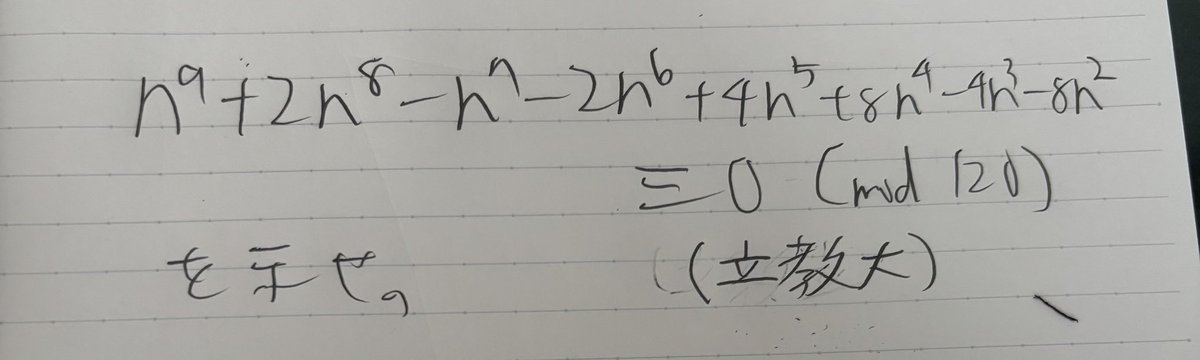 n⁹+2n⁸-n⁷-2n⁶+4n⁵+8n⁴-4n³-8n²
≡0 (mod 120)
を示せ。 (立教大)